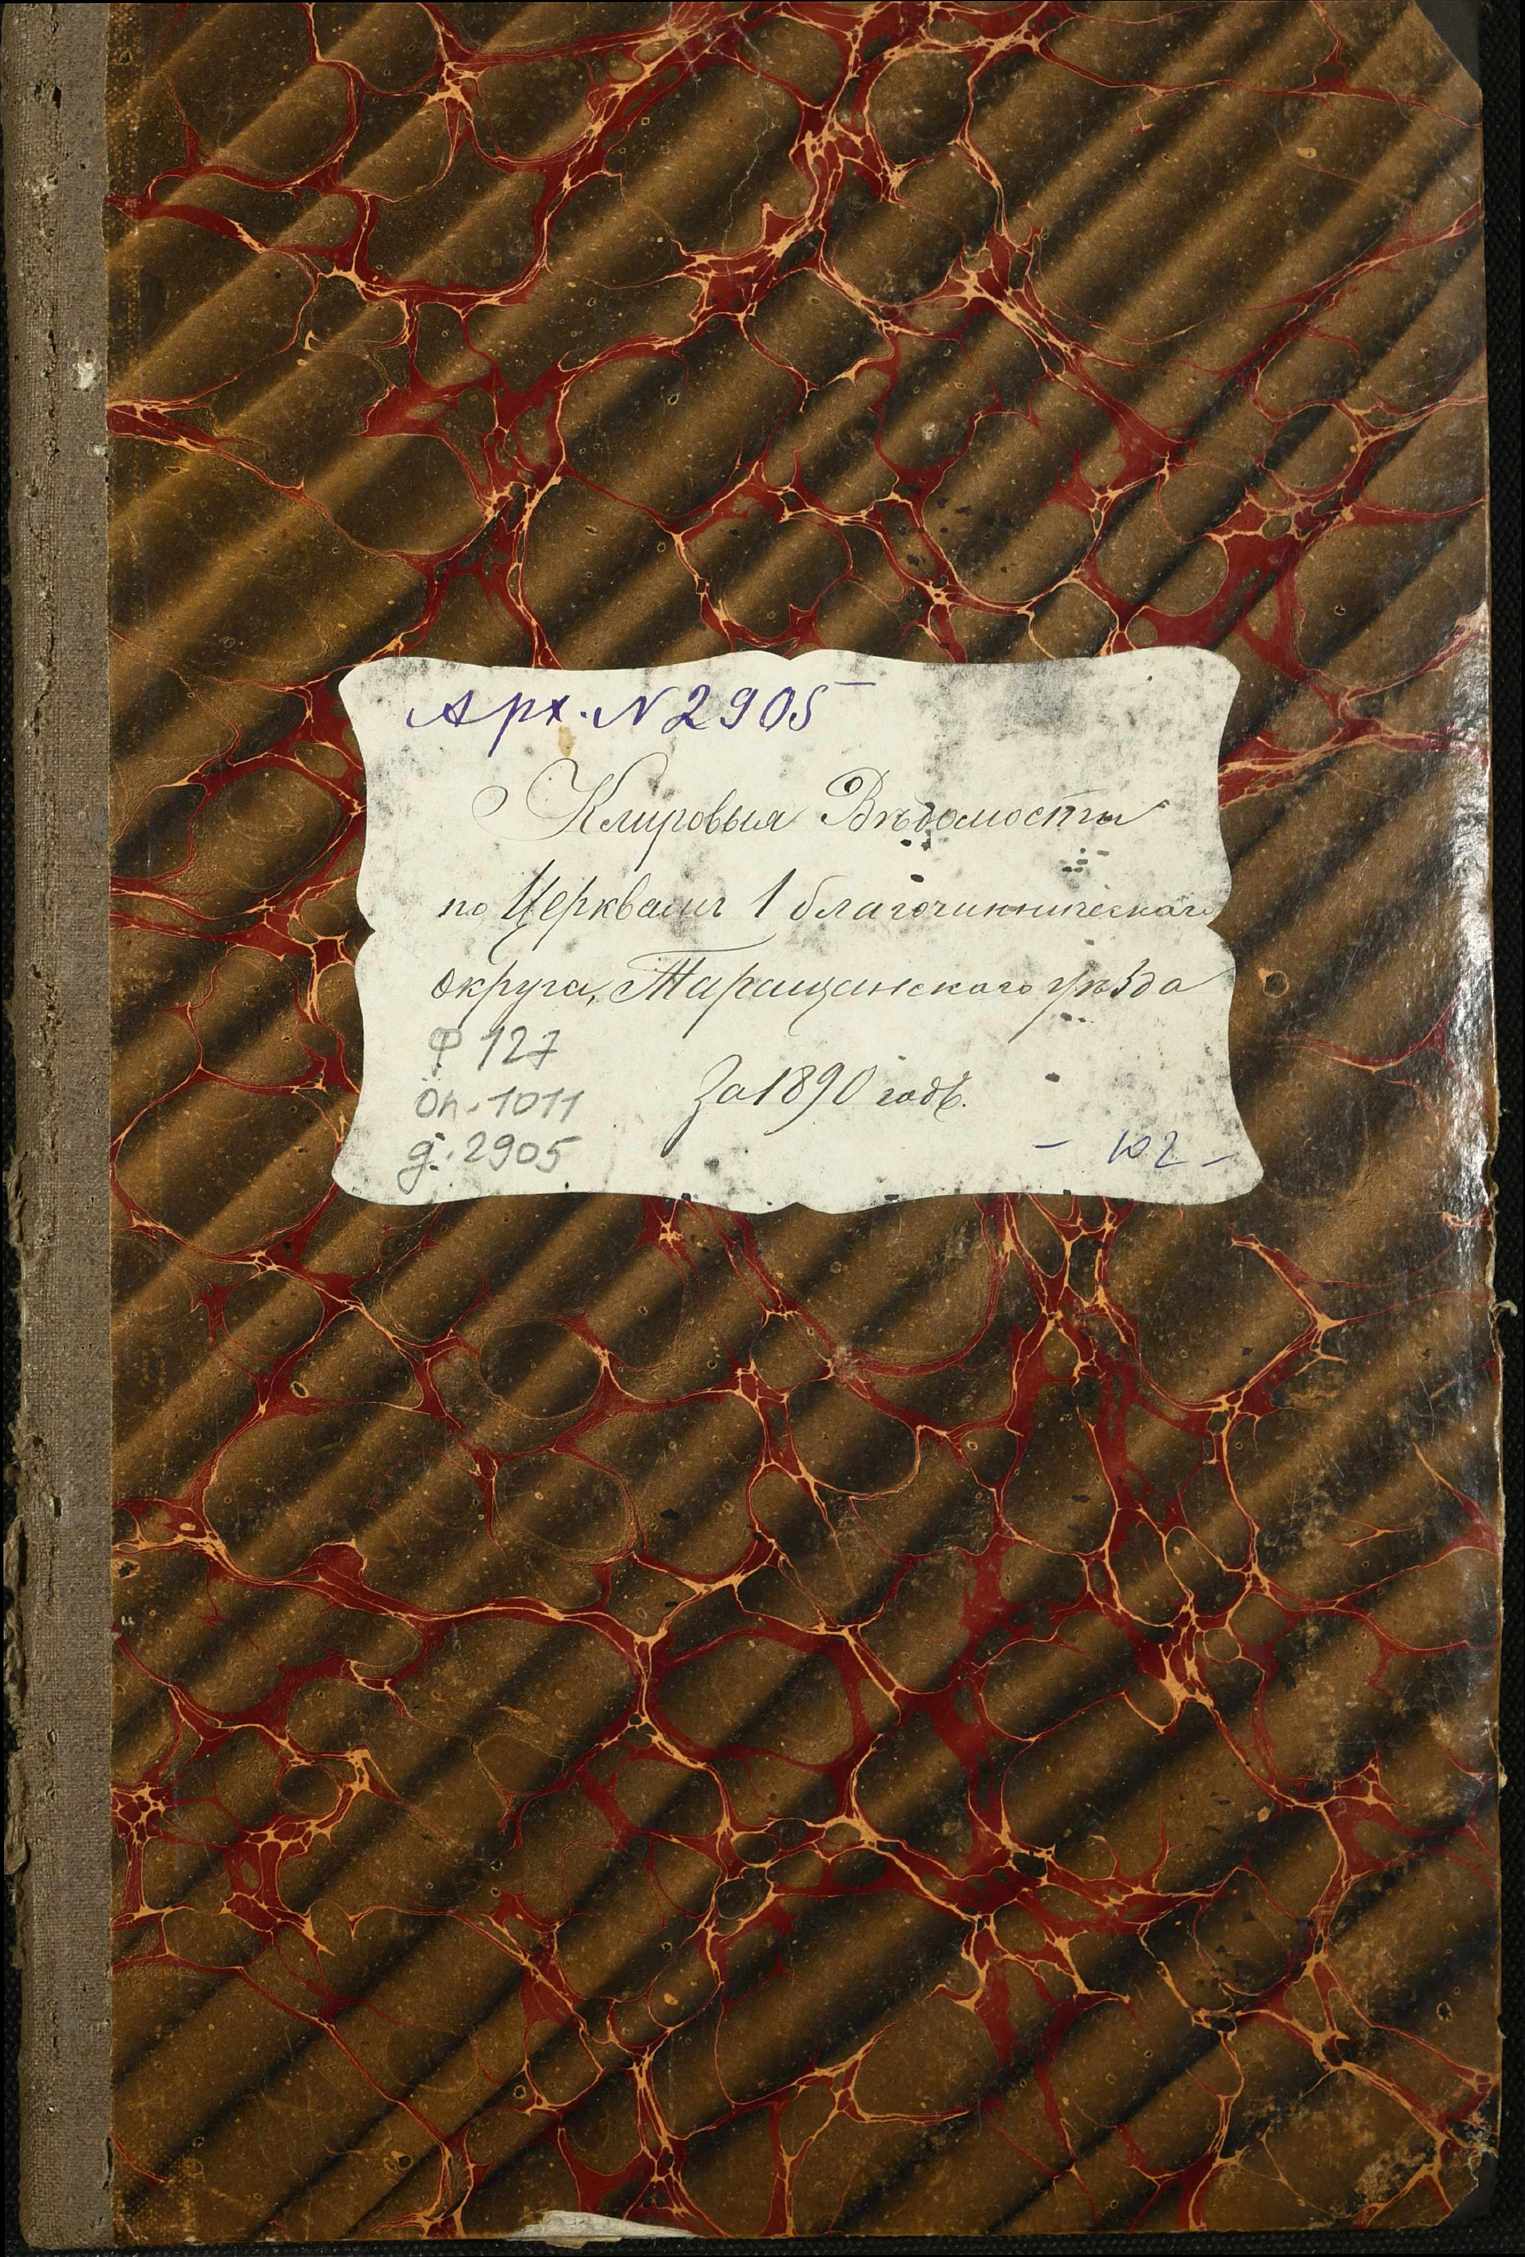 Арх. N 2905
Клировыя Вѣдомости
по Церквамъ 1 благочинническаго
округа, Таращанскаго уѣзда
Ф 127
За 1890 годъ.
оп. 1011
д. 2905
- 102 -